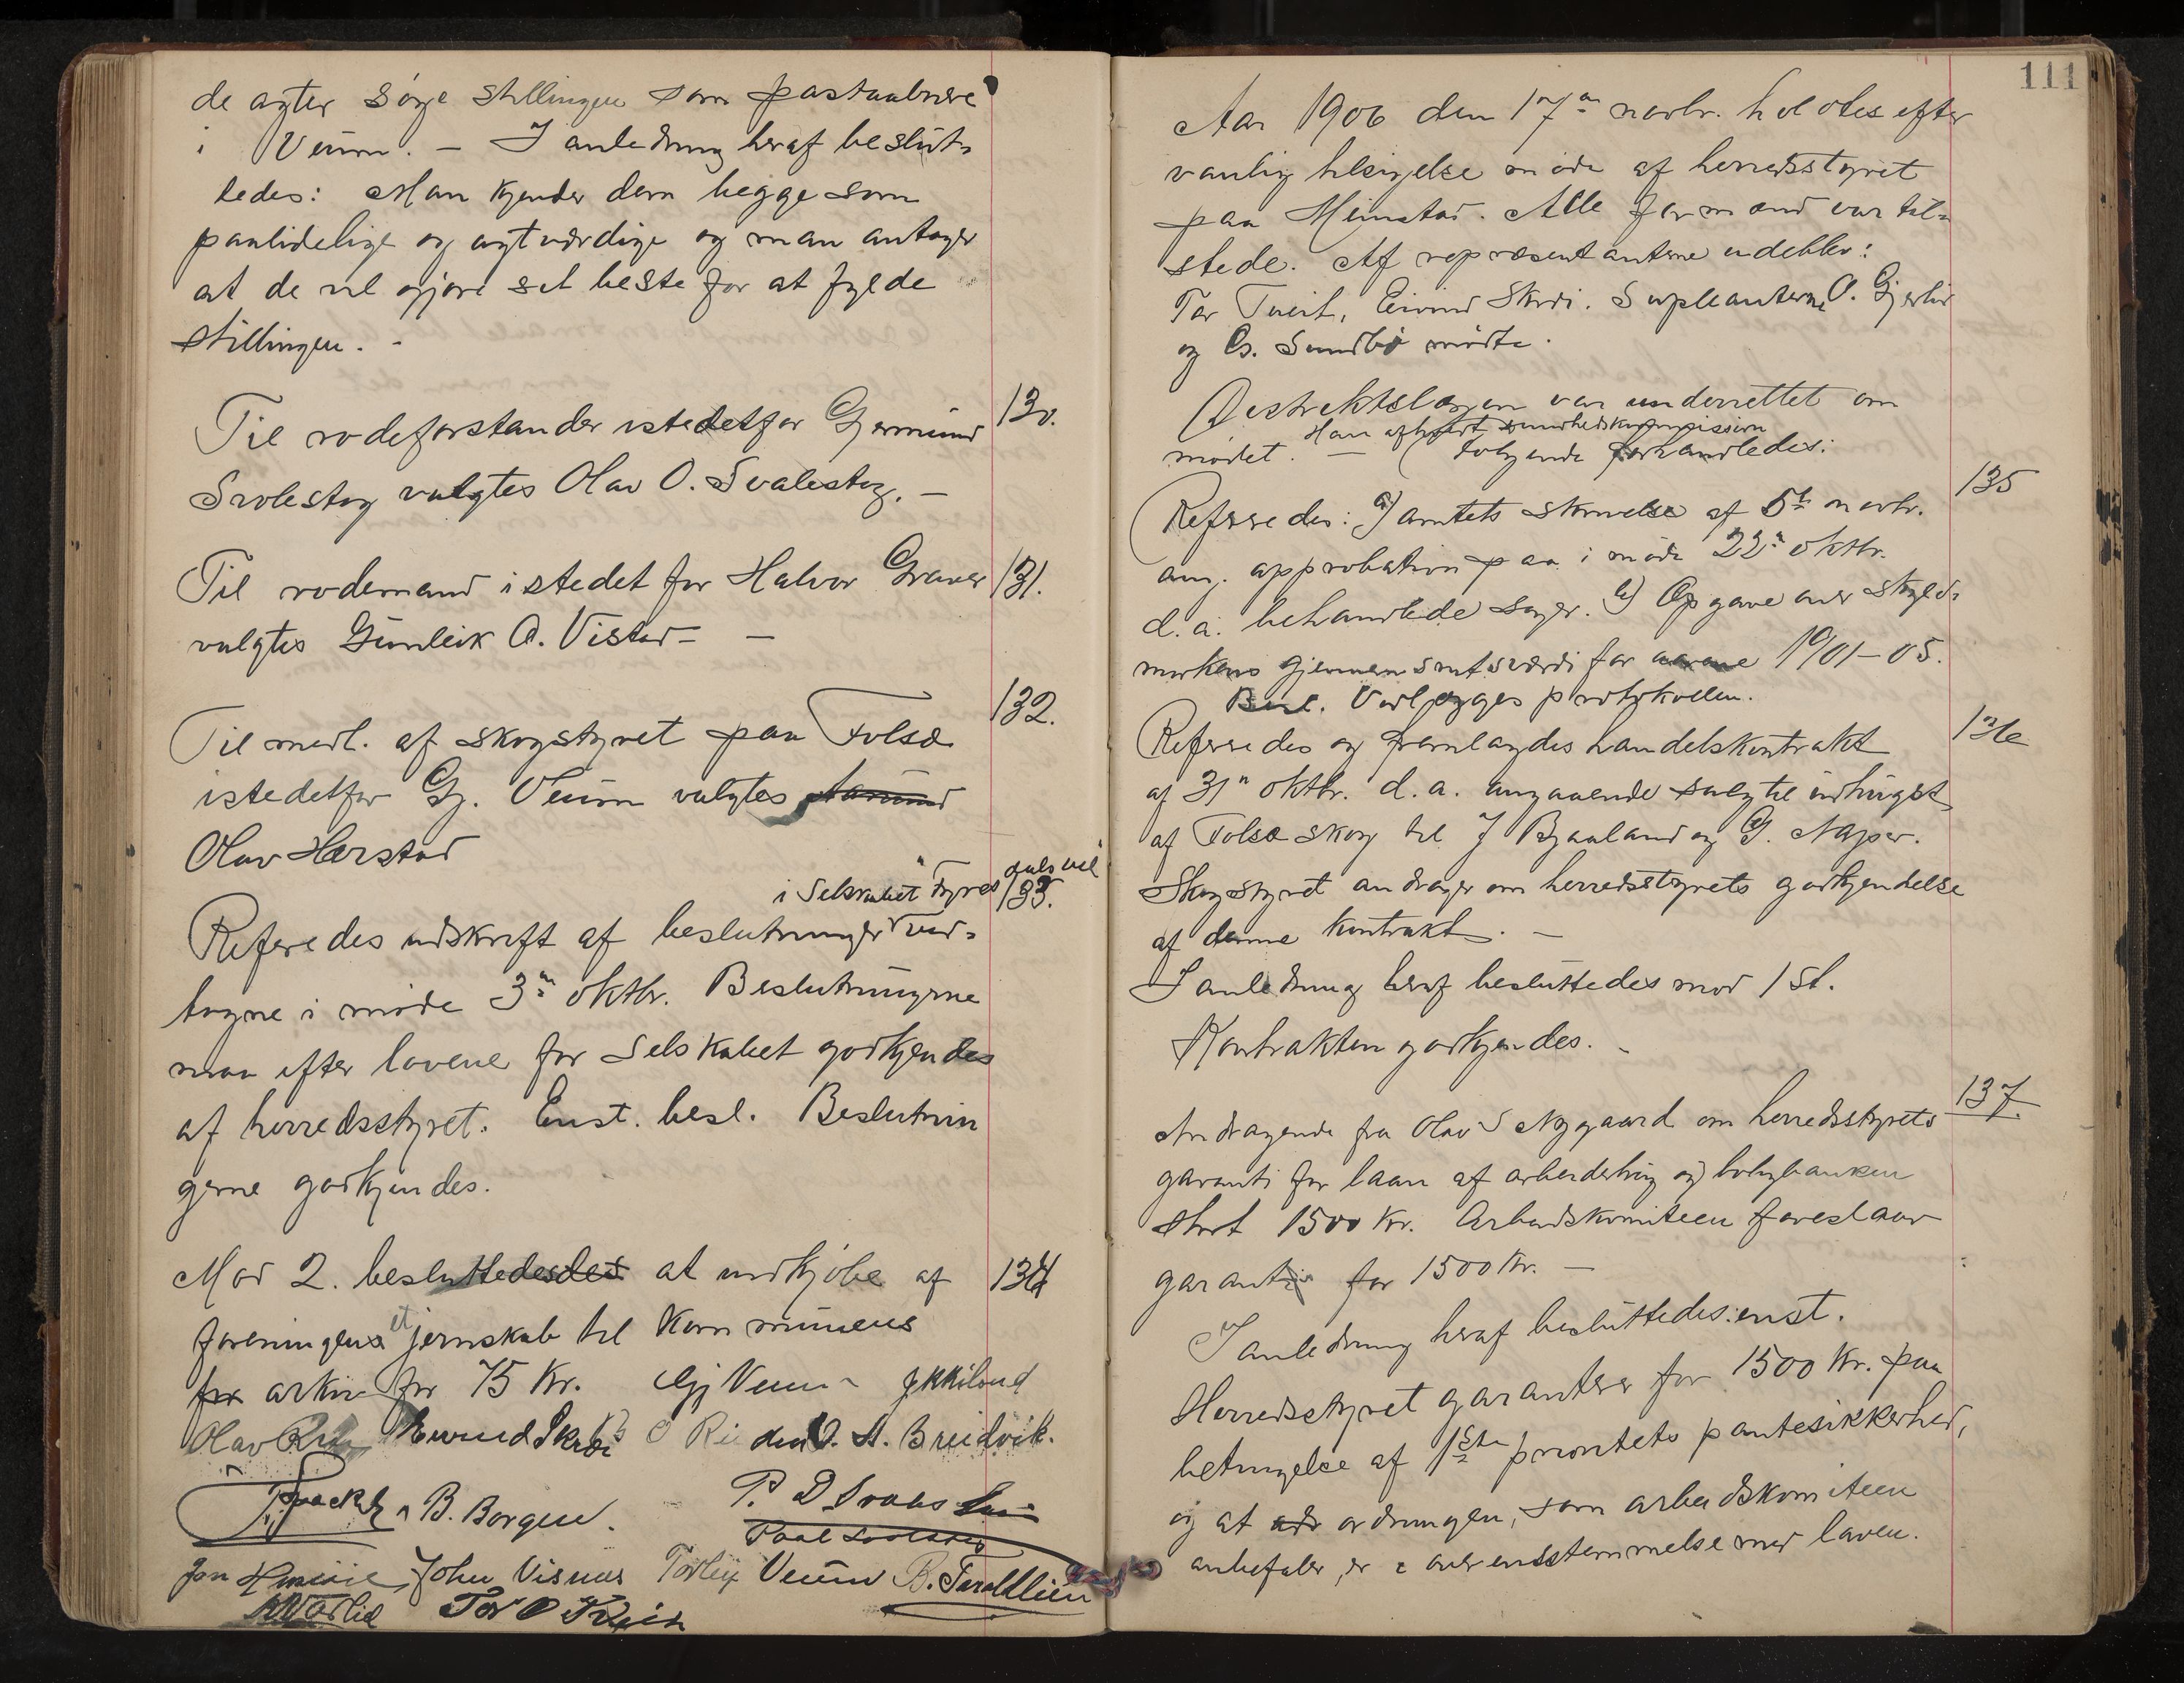 de agter søge stillingen som postaabnere
i Veum. — I anledning heraf beslut-
tedes: Man kjender dem begge som
paalidelige og agtværdige og man antager
at de vil gjøre sit beste for at fylde
stillingen. -
Til rodeforstander istedetfor Gjermund 130.
Svalestog valgtes Olav O. Svalestog. —
Til rodemand istedet for Halvor Graver 131.
valgtes Gunleik O. Vistad — —
Til medl. af skogstyret paa Folsæ 132.
istedetfor Gj. Veum valgtes Aanund
Olav Harstad
i Selskabet "Dyres
133.
Referedes udskrift af beslutninger ved-
tagne i møde 3die oktbr. Beslutningerne
maa efter lovene for Selskabet godkjendes
af herredsstyret. Enst. besl. Beslutnin
gerne godkjendes.
Mod 2. besluttedesdes at indkjøbe af 134
foreningens et jernskab til kommunens
for arkiv for 75 Kr. Gj Veum
Olav Eivind Skrdi O. A. Breidvik.
B. Borgen. P. D
John Visnes Torleif Veum B.
Tor O Tveit
111
Aar 1906 den 17de novbr. holdtes efter
vanlig tilsigelse møde af herredsstyret
paa Meimstad. Alle formænd var til-
stede. Af repræsentanterne udeblev:
Tor Tveit, Eivind Skrdi. Supleanterne O. Gjerlid
og Cs. Sundbø mødte.
Distriktslægen var underrettet om
Han afholdt sundhedskommission
mødet. — Følgende forhandledes:
135
Referedes: a) amtets skrivelse af 5te novbr.
ang. approbation paa i møde 22de oktbr.
d. a. behandlede sager. b) Opgave over skyld-
markens gjennemsnitsværdi for aarene 1901–05.
Besl. Vedlægges protokollen.
136
Referedes og fremlagdes handelskontrakt
af 31te oktbr. d. a. angaaende salg til indhugst
af Folsæ skog til J Bjaaland og G. Naper.
Skogstyret andrager om herredsstyrets godkjendelse
af denne kontrakt. —
I anledning heraf besluttedes mod 1 st.
Kontrakten godkjendes. -
137.
Andragende fra Olav S Nygaard om herredsstyrets
garanti for laan af arbeiderbrug og boligbanken
stort 1500 Kr. Arbeidskomiteen foreslaar
garanti for 1500 Kr. —
I anledning heraf besluttedes: enst.
Herredsstyret garanterer for 1500 Kr. paa
betingelse af 1ste prioritets pantesikkerhed,
og at ordningen, som arbeidskomiteen
anbefaler, er i overensstemmelse med loven.